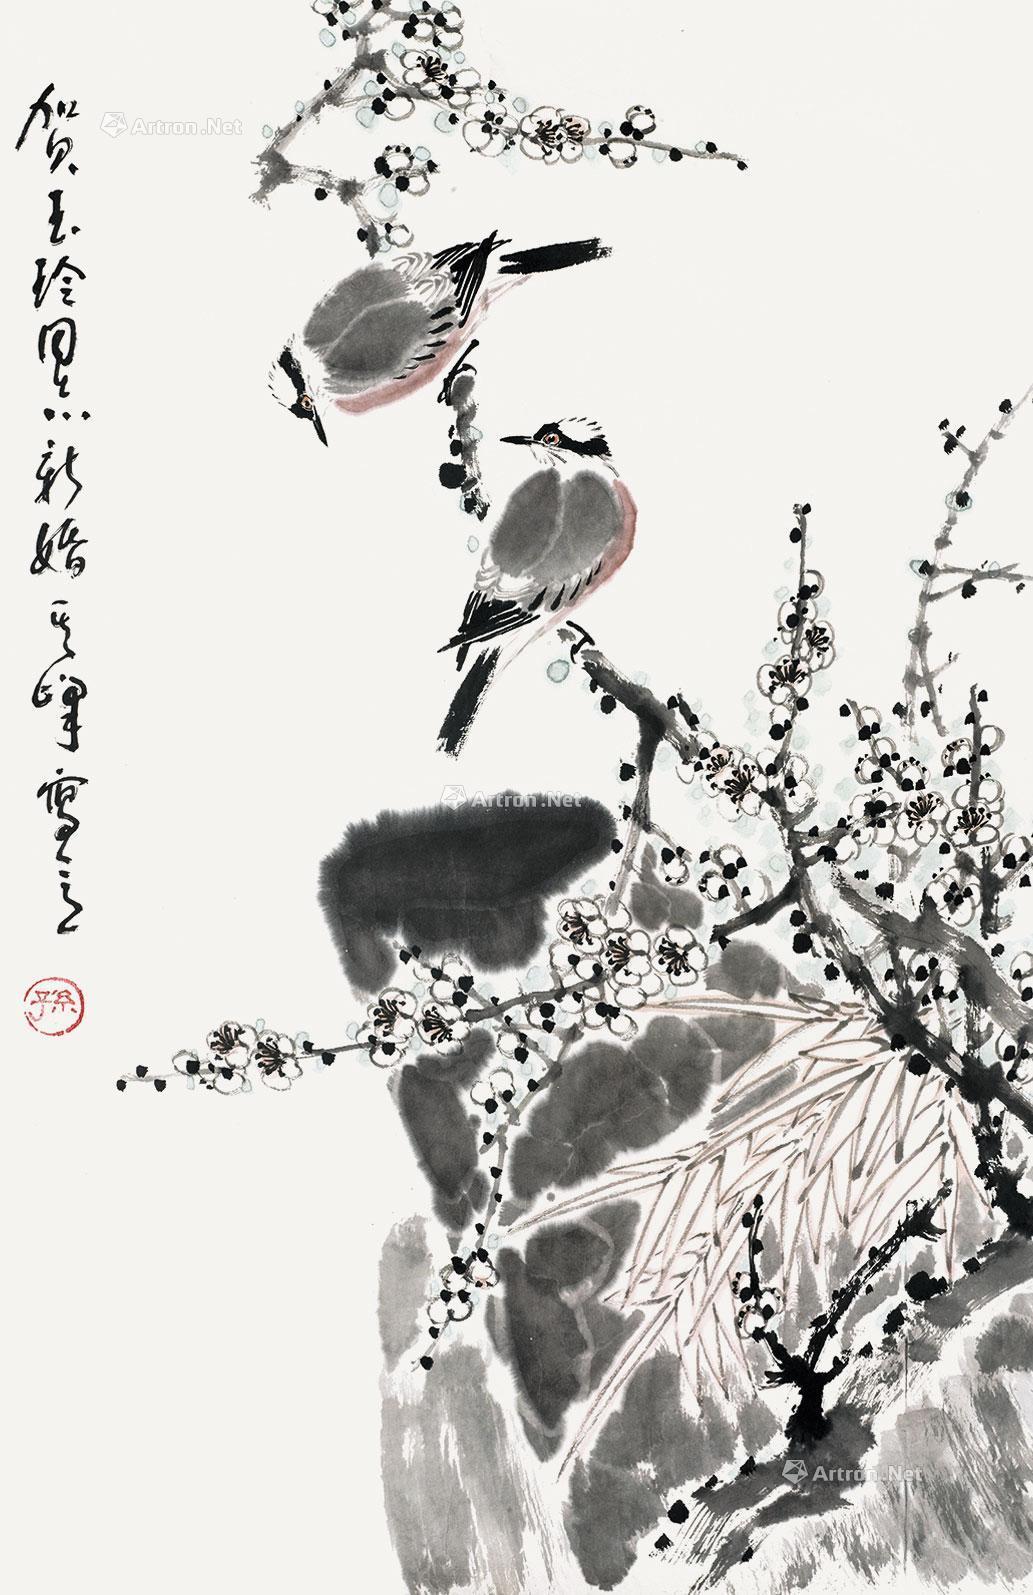 贺玉玲同志新婚其峰写之
孙
Artron.Net
Artron.Net
Artron.Net